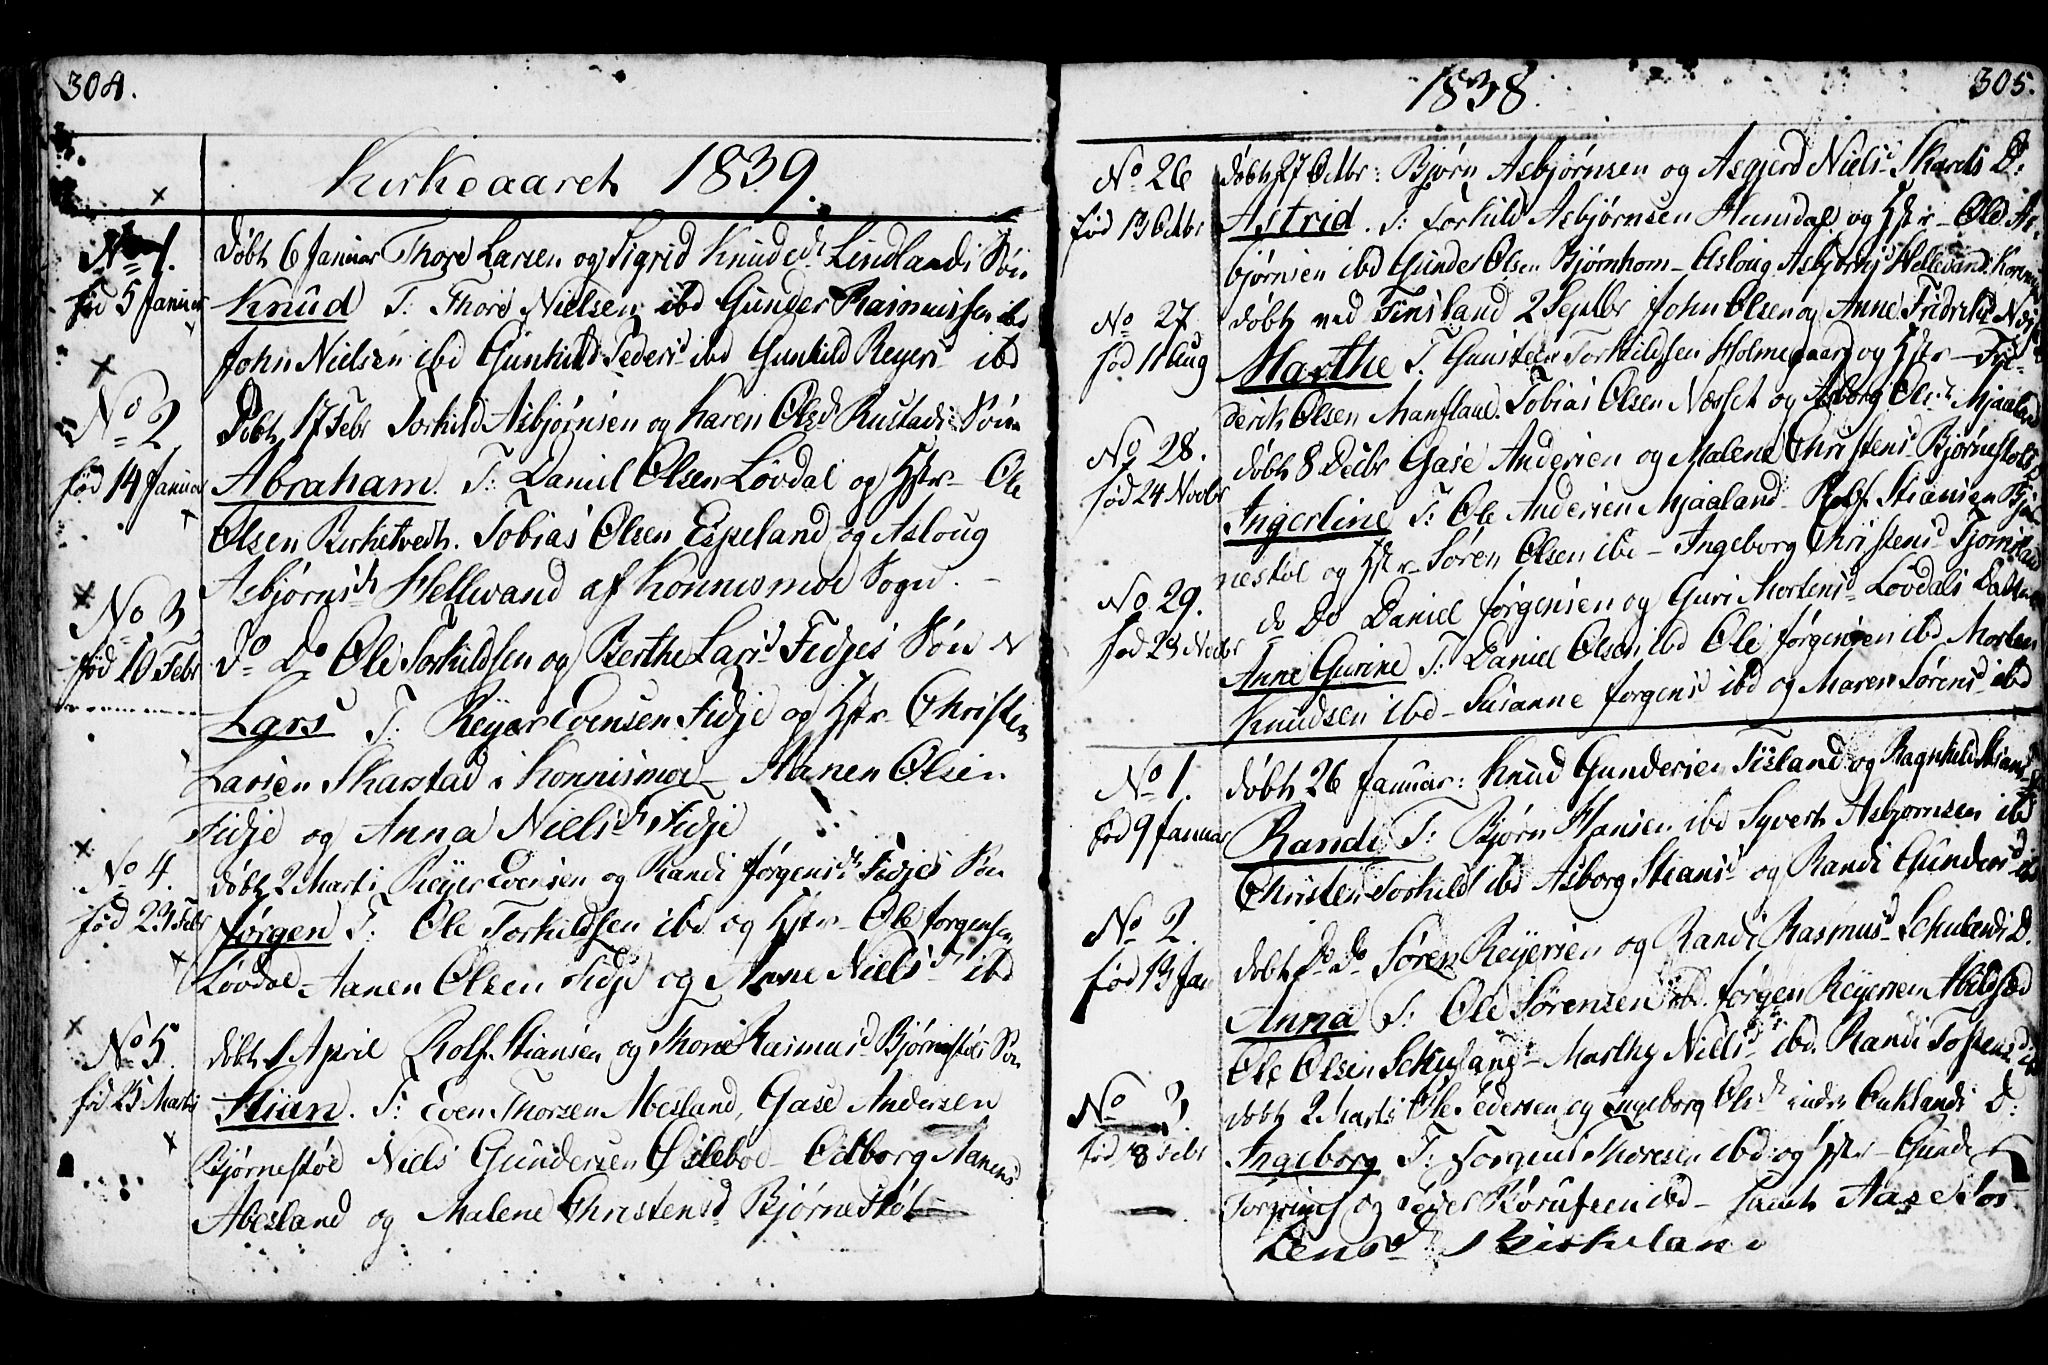 304.
Kirkeaaret 1839.
No 1.
fød 5 Januar
Døbt 6 Januar Thore Larsen og Sigrid Knudsd. Lindlands Søn
Knud T: Thore Nielsen ibd Gunder Rasmussen ibd
John Nielsen ibd Gunhild Peders ibd Gunhild Reyers ibd
No 2
fød 14 Januar
Døbt 17 Febr Torkild Asbjørnsen og Karen Olsd Rustads Søn
Abraham. T: Daniel Olsen Løvdal og Hstr - Ole
Olsen Birketvedt. Tobias Olsen Espeland og Asloug
Asbjørnsd Hellevand af Konnismoe Sogn. -
No 3
fød 10 Febr
Do Do Ole Torkildsen og Berthe Larsd Fidjes Søn
Lars T. Reyer Evensen Fidje og Hstr Christen
Larsen Skarstad i Konnismoe - Aanen Olsen
Fidje og Anna Nielsd Fidje
No 4.
fød 23 Febr
døbt 2 Marti Reyer Evensen og Randi Jørgensd. Fidjes Søn
Jørgen T. Ole Torkildsen ibd og Hstr - Ole Jørgensen
Løvdal - Aanen Olsen Fidje og Anne Nielsd ibd
No 5
fød 25 Marti
døbt 1 April Rolf Stiansen og Thore Rasmusd Bjørnestøls Søn
Stian. T: Even Thorsen Abesland, Gase Andersen
Bjørnestøl Niels Gundersen Øslebøe - Odborg Aanensd
Abesland og Malene Christensd Bjørnestøl
1838.
305.
No 26
fød 13 Octbr
døbt 27 Octbr: Bjørn Asbjørnsen og Asgjerd Nielsd Skareds D:
Astrid. T: Torkild Asbjørnsen Hunsdal og Hstr - Ole As-
bjørnsen ibd Gunder Olsen Bjørnhom - Asloug Asbjørnsd Hellevand
No 27
fød 11 Aug
døbt ved Finsland 2 Septbr John Olsen og Anne Fridriksd
Marthe T. Gunsteen Torkildsen Holmegaard og Hstr - Fri-
derik Olsen Manfland. Tobias Olsen Næsset og Asborg Olsd Mjaaland
No 28.
fød 24 Novbr
døbt 8 Decbr Gase Andersen og Malene Christensd Bjørnestøls
Ingerline T: Ole Andersen Mjaaland - Rolf Stiansen Bjør-
nestøl og Hstr - Søren Olsen ibd - Ingeborg Christensd Tjomsland
No 29.
fød 23 Novbr
do Do Daniel Jørgensen og Guri Mortensd Løvdals Datter
Anne Gurine T: Daniel Olsen ibd Ole Jørgensen ibd Morten
Knudsen ibd - Susanne Jørgensd ibd og Maren Sørensd ibd
No 1.
fød 9 Januar
døbt 26 Januar: Knud Gundersen Fisland og Ragnhild Stiansd
Randi T: Bjørn Hansen ibd Syvert Asbjørnsen ibd
Christen Torkilds ibd Asborg Stiansd og Randi Gundersd ibd
No 2.
fød 13 Jan
døbt Do Do Søren Reyersen og Randi Rasmusd Schulands D.
Anna T: Ole Sørensen ibd. Jørgen Reyersen Abildsæd
Ole Olsen Schuland - Marthe Nielsd ibd. Randi Tostensd ibd
No 3
fød 8 Febr
døbt 2 Marts Ole Pedersen og Ingeborg Olsd indre Øuklands D:
Ingeborg T: Torgrim Thoresen ibd og Hstr - Gunder
Torgrims og Peder ibd - samt Aase Tos
tensd Birkeland